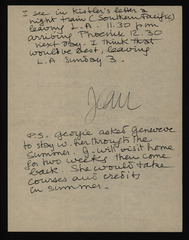 I see in Kistler's letter a
night train (Southern Pacific)
leaving L.A. 11.30 p.m
arriving Phoenix 12.30
next day. I think that
would be best, leaving
L.A Sunday 3.
Jean
P.S. Georgie asked Genevieve
to stay w. her through the
Summer. G. will visit home
for two weeks then come
back. She would take
courses and credits
in summer.